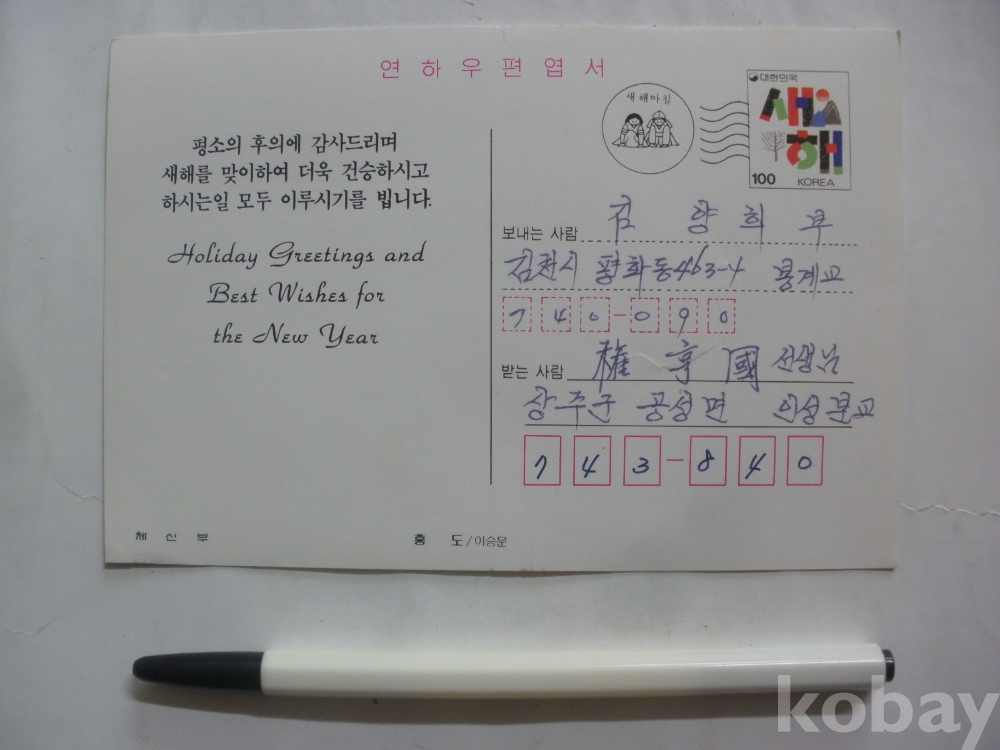 연하우편엽서
새해아침
대한민국
새해
100 KOREA
평소의 후의에 감사드리며
새해를 맞이하여 더욱 건승하시고
하시는일 모두 이루시기를 빕니다.
Holiday Greetings and
Best Wishes for
the New Year
보내는 사람 김 양 희
김천시 평화동 463-4
740-090
받는 사람 權 亨 國 선생님
상주군 공성면 인성분교
743-840
체 신 부
홍 도/이승문
kobay